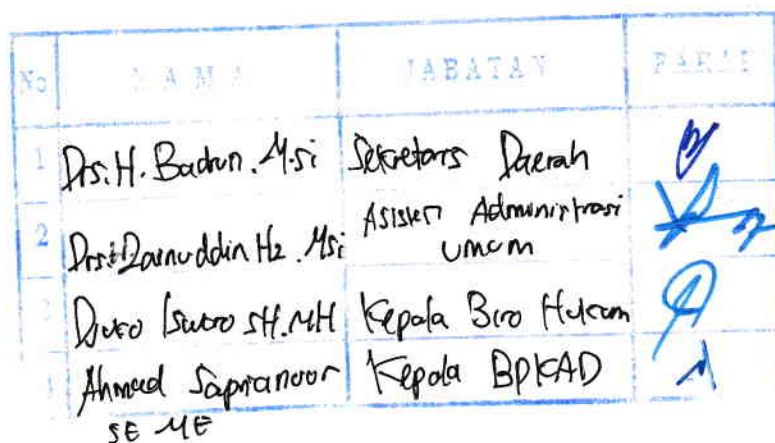 No NAMA JABATAN PARAF
1 Drs. H. Badrun. M.si Sekretaris Daerah
2 Drs. H. Zainuddin Hz. Msi Asisten Administrasi
Umum
3 Djuro Isworo SH. MH Kepala Biro Hukum
Ahmad Saprianoor Kepala BPKAD
SE ME